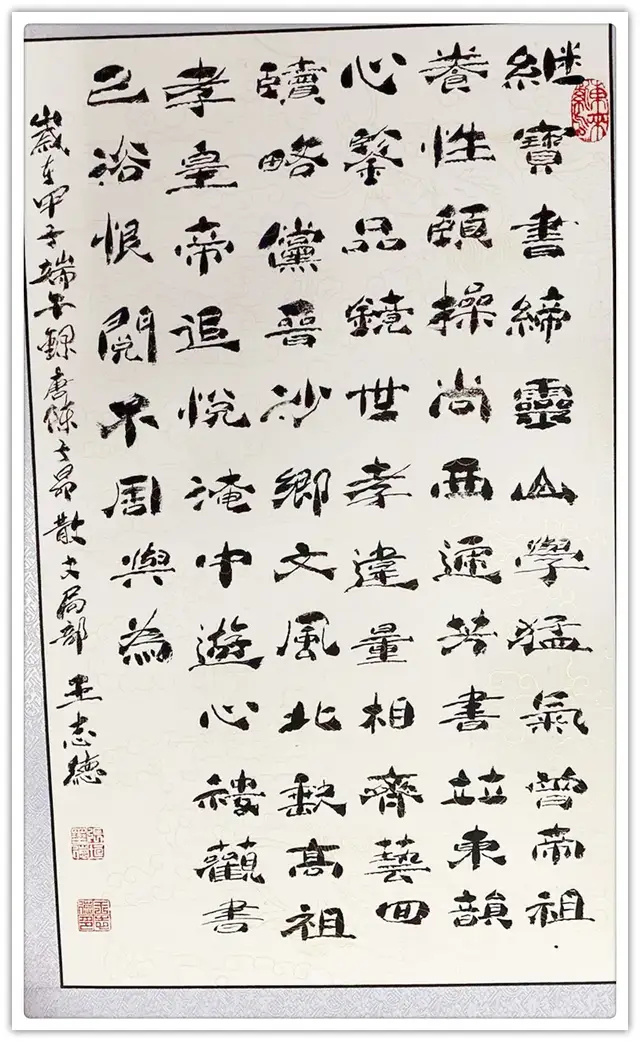 継寶書締靈山學猛氣普帝祖
養性頤操尚西遞芳書竝東韻
心鑒品鏡世孝違量相齊藝回
牘略儻晉沙鄉文風北歎高祖
孝皇帝追悅淹中遊心觀書
已浴恨閱不周與為
歲在甲子端午錄唐陳子昂散文局部 王志德